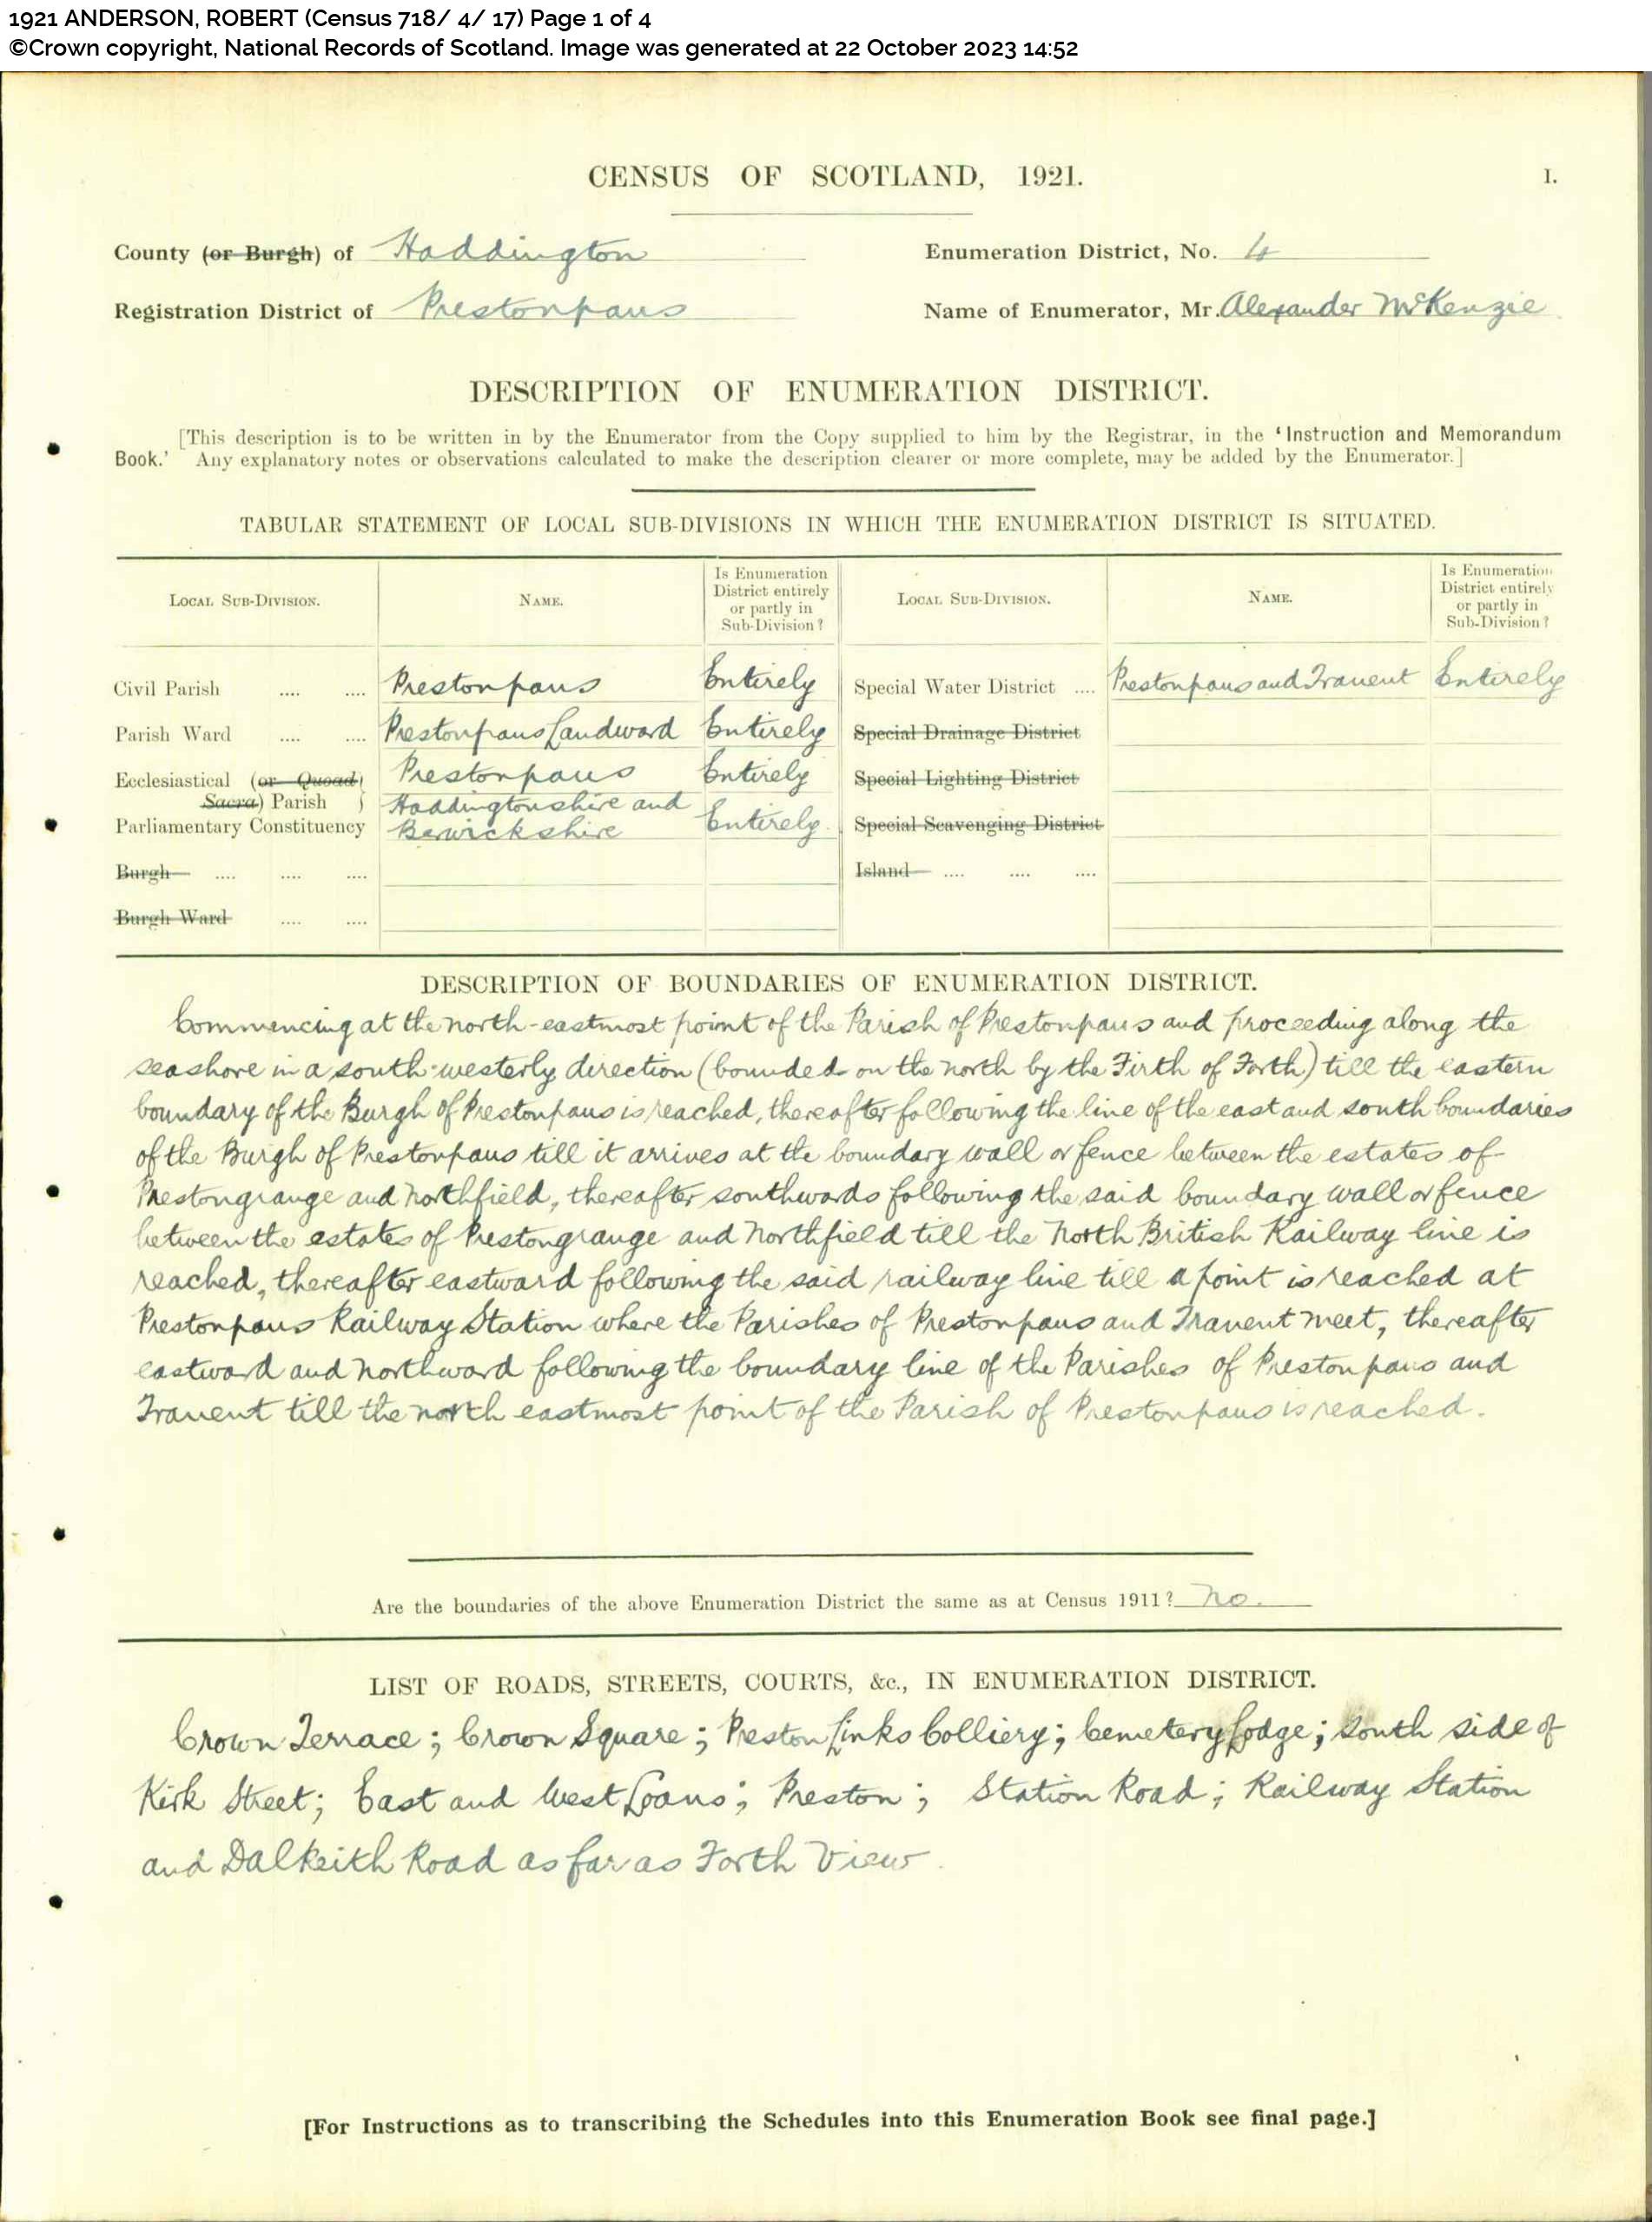 1921 ANDERSON, ROBERT (Census 718/ 4/ 17) Page 1 of 4
©Crown copyright, National Records of Scotland. Image was generated at 22 October 2023 14:52
CENSUS OF SCOTLAND, 1921.
1.
County (or Burgh) of Haddington
Enumeration District, No. 4
Registration District of Prestonpans
Name of Enumerator, Mr. Alexander McKenzie
DESCRIPTION OF ENUMERATION DISTRICT.
[This description is to be written in by the Enumerator from the Copy supplied to him by the Registrar, in the 'Instruction and Memorandum
Book.' Any explanatory notes or observations calculated to make the description clearer or more complete, may be added by the Enumerator.]
TABULAR STATEMENT OF LOCAL SUB-DIVISIONS IN WHICH THE ENUMERATION DISTRICT IS SITUATED.
LOCAL SUB-DIVISION.
NAME.
Is Enumeration
District entirely
or partly in
Sub-Division?
LOCAL SUB-DIVISION.
NAME.
Is Enumeration
District entirely
or partly in
Sub-Division?
Civil Parish .... .... Prestonpans Entirely Special Water District .... Prestonpans and Tranent Entirely
Parish Ward .... .... Prestonpans Landward Entirely Special Drainage District
Ecclesiastical (or Quoad) Prestonpans Entirely Special Lighting District
Sacra) Parish ) Haddingtonshire and
Parliamentary Constituency Berwickshire Entirely Special Scavenging District
Burgh .... .... .... Island .... .... ....
Burgh Ward .... ....
DESCRIPTION OF BOUNDARIES OF ENUMERATION DISTRICT.
Commencing at the north-eastmost point of the Parish of Prestonpans and proceeding along the
seashore in a south-westerly direction (bounded on the north by the Firth of Forth) till the eastern
boundary of the Burgh of Prestonpans is reached, thereafter following the line of the east and south boundaries
of the Burgh of Prestonpans till it arrives at the boundary wall or fence between the estates of
Prestongrange and Northfield, thereafter southwards following the said boundary wall or fence
between the estates of Prestongrange and Northfield till the North British Railway line is
reached, thereafter eastward following the said railway line till a point is reached at
Prestonpans Railway Station where the Parishes of Prestonpans and Tranent meet, thereafter
eastward and northward following the boundary line of the Parishes of Prestonpans and
Tranent till the north eastmost point of the Parish of Prestonpans is reached.
Are the boundaries of the above Enumeration District the same as at Census 1911? No.
LIST OF ROADS, STREETS, COURTS, &c., IN ENUMERATION DISTRICT.
Crown Terrace; Crown Square; Preston Links Colliery; Cemetery Lodge; South side of
Kirk Street; East and West Loans; Preston; Station Road; Railway Station
and Dalkeith Road as far as Forth View.
[For Instructions as to transcribing the Schedules into this Enumeration Book see final page.]